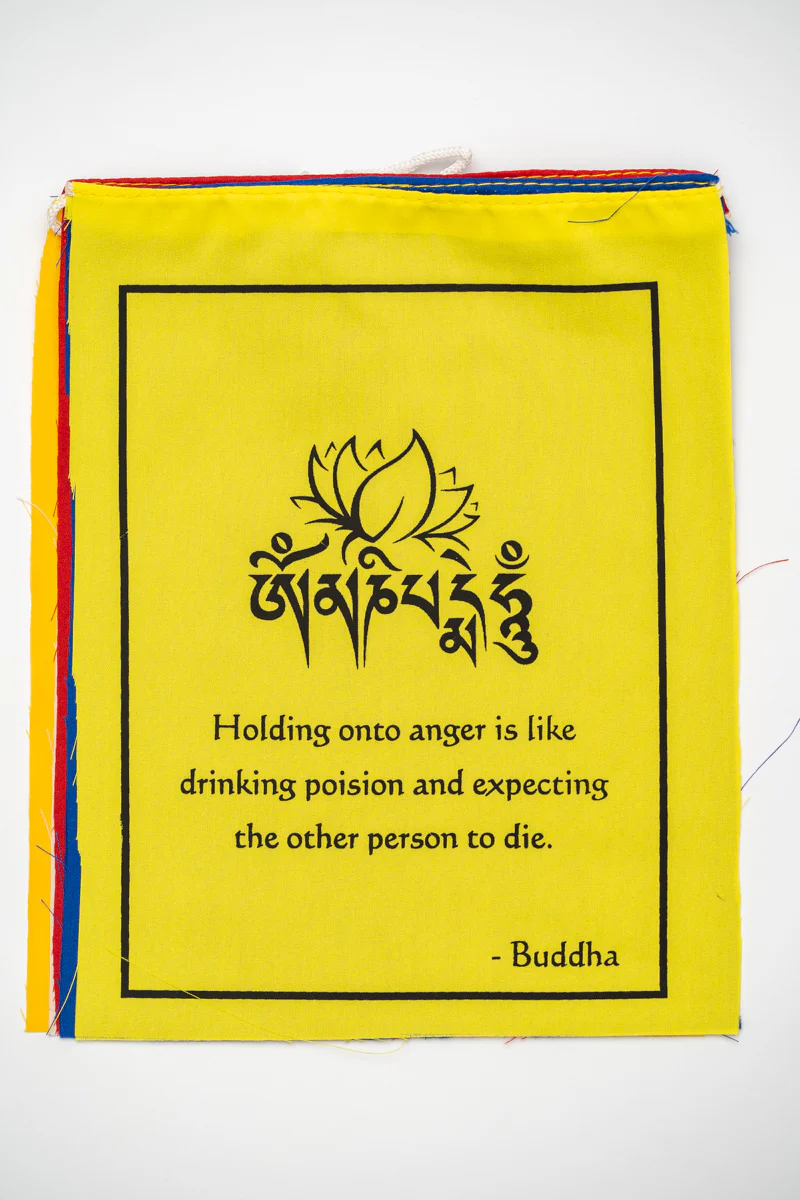 ཨོཾ་མ་ཎི་པདྨེ་ཧཱུྃ
Holding onto anger is like
drinking poision and expecting
the other person to die.
- Buddha